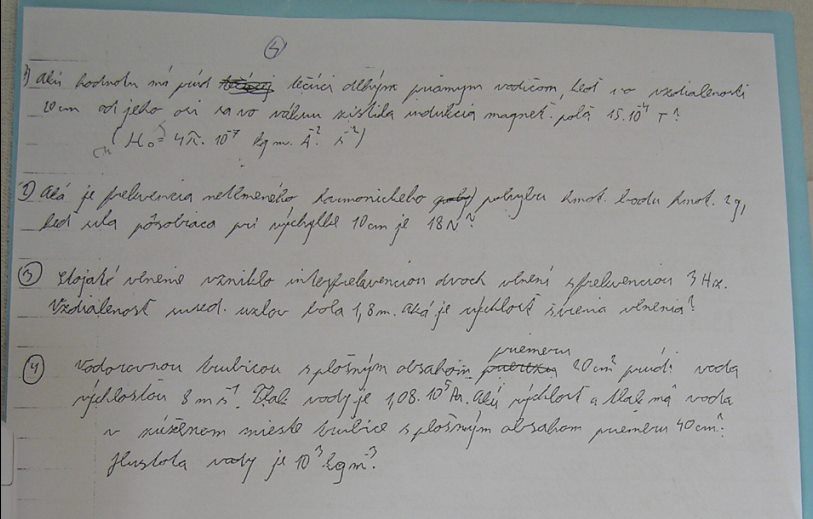 5
1) Akú hodnotu má prúd tečúci dlhým priamym vodičom, keď vo vzdialenosti
20 cm od jeho osi sa vo vákuu zistila indukcia magnet. poľa 15.10⁻⁴ T?
(μ₀ = 4π.10⁻⁷ kg m. A⁻². s⁻²)
2) Aká je frekvencia netlmeného harmonického pohybu hmot. bodu hmot. 2g,
keď sila pôsobiaca pri výchylke 10 cm je 18 N?
3) Stojaté vlnenie vzniklo interferenciou dvoch vlnení s frekvenciou 3 Hz.
Vzdialenosť sused. uzlov bola 1,8 m. Aká je rýchlosť šírenia vlnenia?
4) Vodorovnou trubicou s plošným obsahom priemeru 20 cm² prúdi voda
rýchlosťou 8 m s⁻¹. Tlak vody je 1,08.10⁵ Pa. Akú rýchlosť a tlak má voda
v zúženom mieste trubice s plošným obsahom priemeru 40 cm².
Hustota vody je 10³ kg m⁻³.